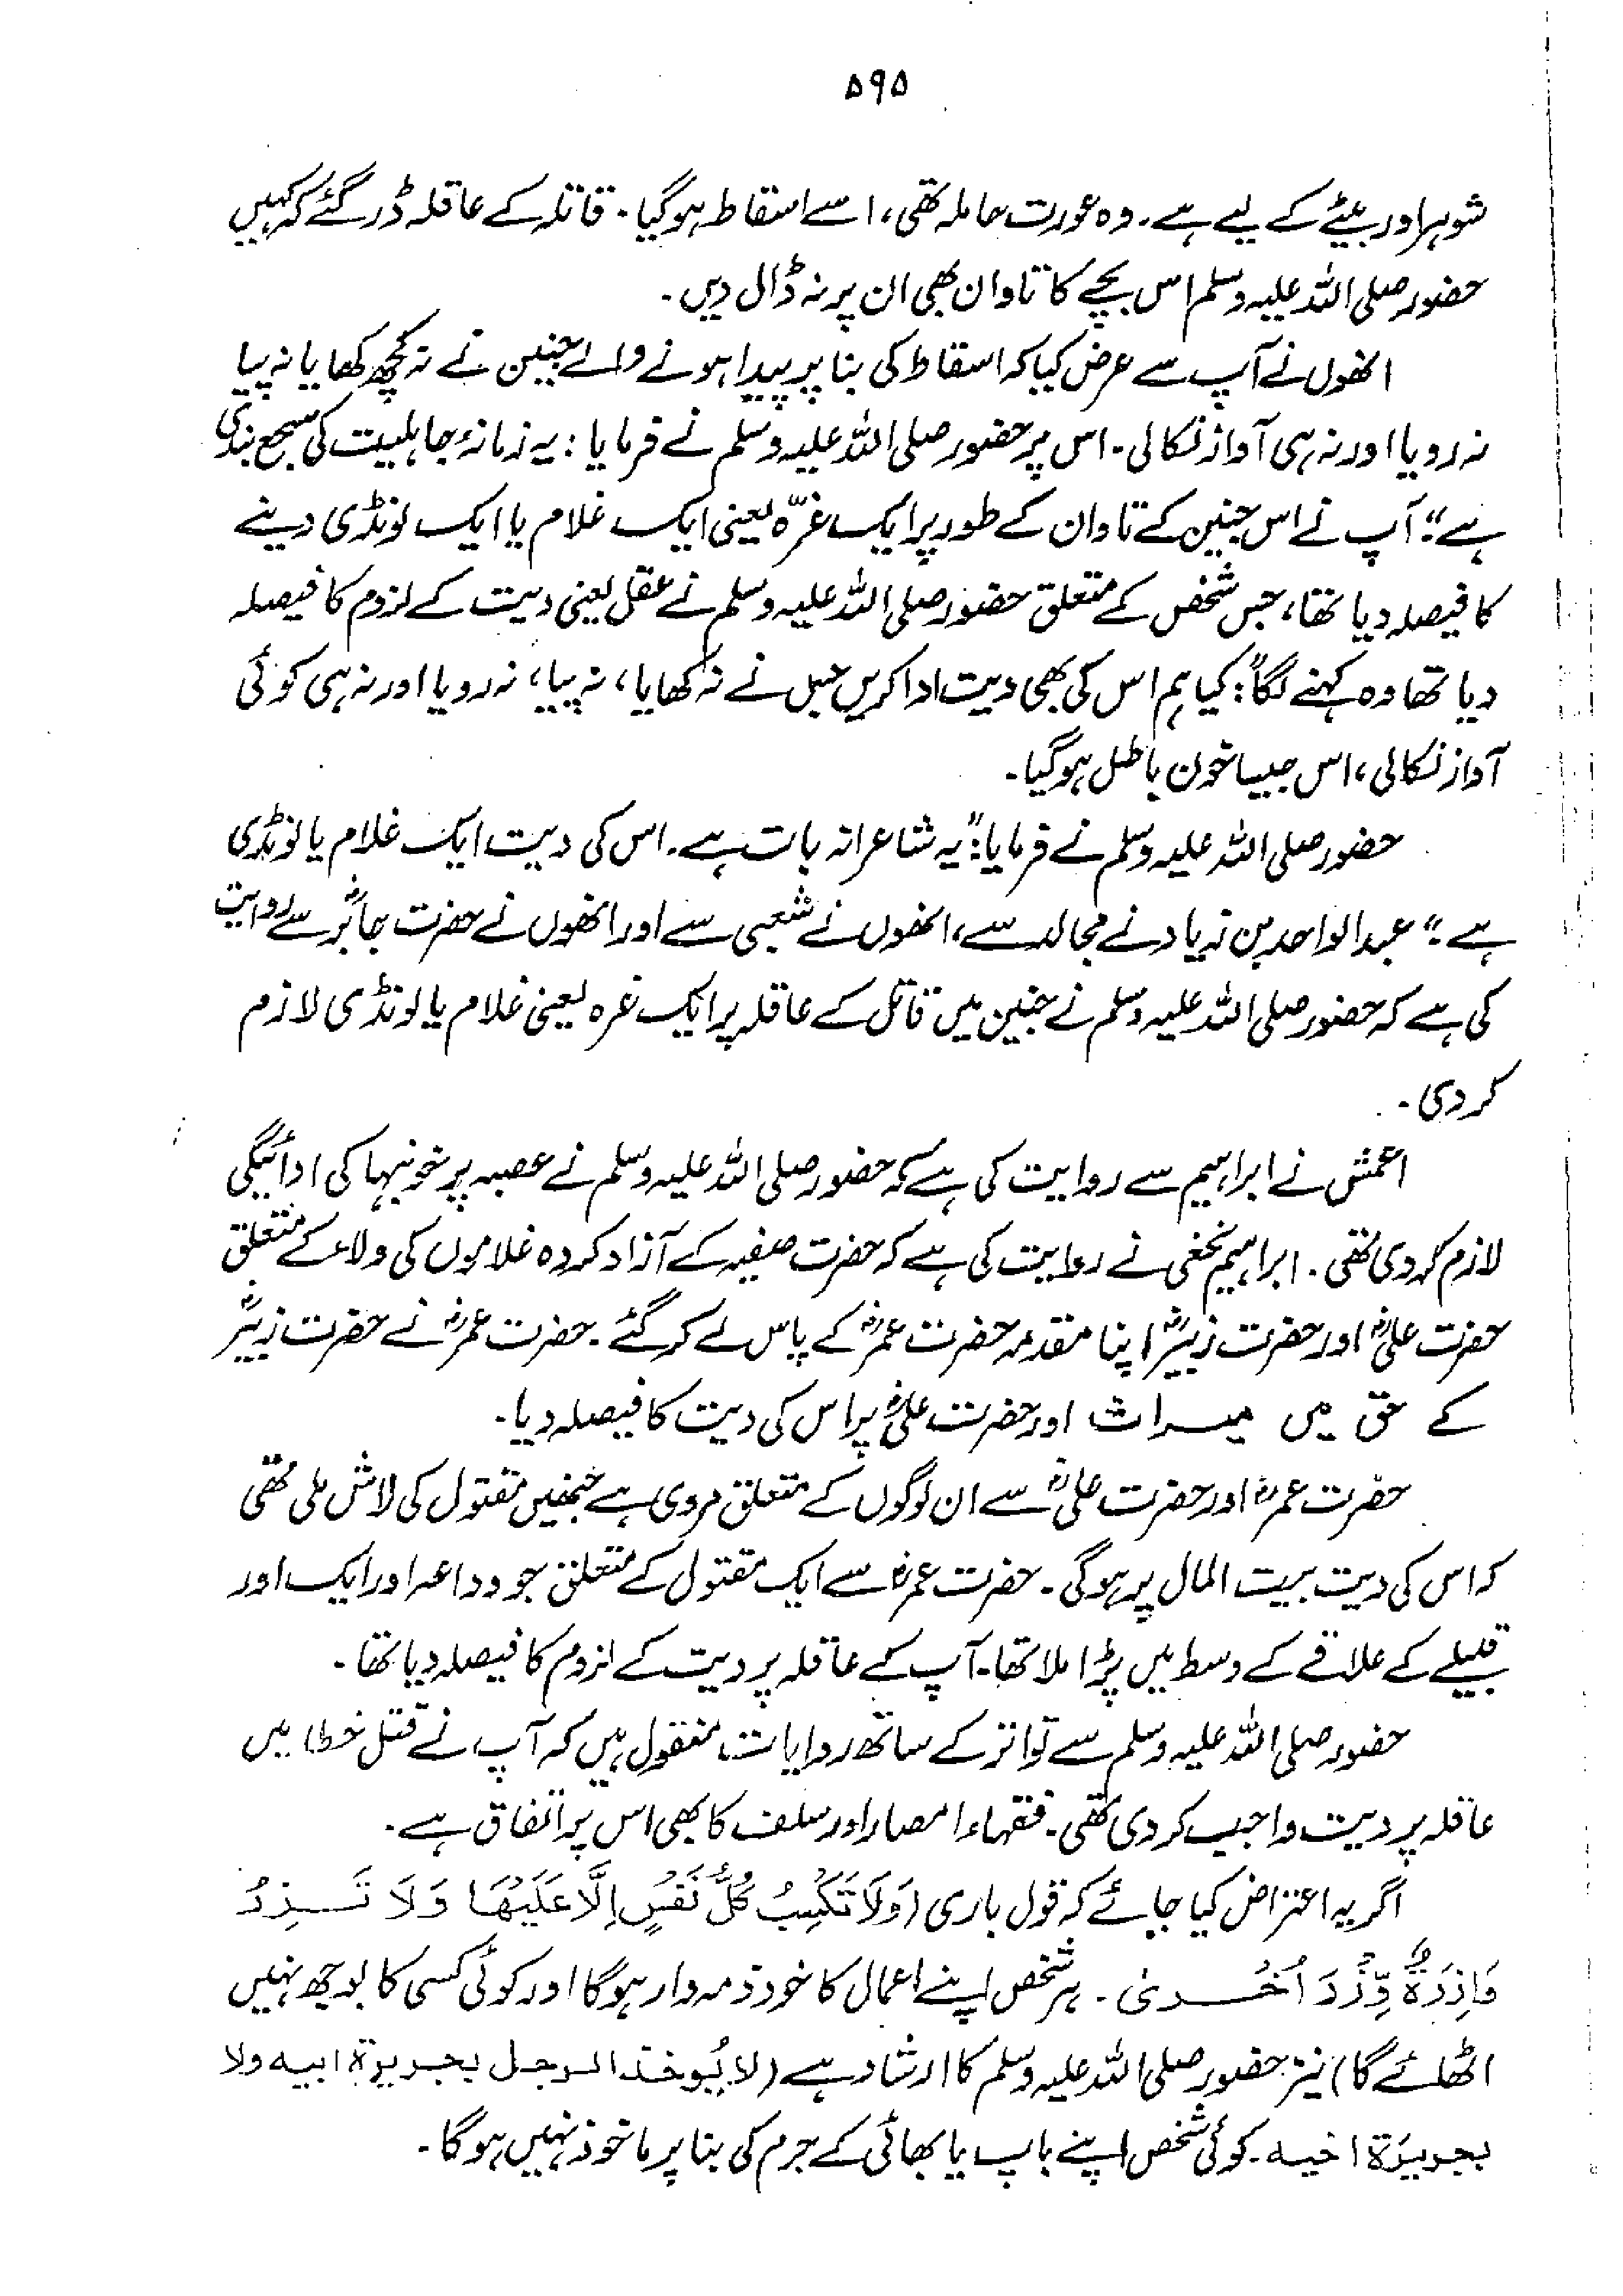 ۵۹۵
شوہر اور بیٹے کے لیے ہے۔ وہ عورت حاملہ تھی، اسے اسقاط ہوگیا۔ قاتلہ کے عاقلہ ڈر گئے کہ کہیں
حضور صلی اللہ علیہ وسلم اس بچے کا تاوان بھی ان پر نہ ڈال دیں۔
انھوں نے آپ سے عرض کیا کہ اسقاط کی بنا پر پیدا ہونے والے جنین نے نہ کچھ کھایا نہ پیا
نہ رویا اور نہ ہی آواز نکالی۔ اس پر حضور صلی اللہ علیہ وسلم نے فرمایا: یہ زمانۂ جاہلیت کی سجع بندی
ہے" آپ نے اس جنین کے تاوان کے طور پر ایک غرّہ یعنی ایک غلام یا ایک لونڈی دینے
کا فیصلہ دیا تھا، جس شخص کے متعلق حضور صلی اللہ علیہ وسلم نے عقل یعنی دیت کے لزوم کا فیصلہ
دیا تھا وہ کہنے لگا: "کیا ہم اس کی بھی دیت ادا کریں جس نے نہ کھایا، نہ پیا، نہ رویا اور نہ ہی کوئی
آواز نکالی، اس جیسا خون باطل ہوگیا۔
حضور صلی اللہ علیہ وسلم نے فرمایا: "یہ شاعرانہ بات ہے۔ اس کی دیت ایک غلام یا لونڈی
ہے۔" عبدالواحد بن زیاد نے مجالد سے، انھوں نے شعبی سے اور انھوں نے حضرت جابرؓ سے روایت
کی ہے کہ حضور صلی اللہ علیہ وسلم نے جنین میں قاتل کے عاقلہ پر ایک غرہ یعنی غلام یا لونڈی لازم
کردی۔
اعمش نے ابراہیم سے روایت کی ہے کہ حضور صلی اللہ علیہ وسلم نے عصبہ پر خونبہا کی ادائیگی
لازم کردی تھی۔ ابراہیم نخعی نے روایت کی ہے کہ حضرت صفیہ کے آزاد کردہ غلاموں کی ولاء کے متعلق
حضرت علیؓ اور حضرت زبیرؓ اپنا مقدمہ حضرت عمرؓ کے پاس لے کر گئے۔ حضرت عمرؓ نے حضرت زبیرؓ
کے حق میں میراث اور حضرت علیؓ پر اس کی دیت کا فیصلہ دیا۔
حضرت عمرؓ اور حضرت علیؓ سے ان لوگوں کے متعلق مروی ہے جنھیں مقتول کی لاش ملی تھی
کہ اس کی دیت بیت المال پر ہوگی۔ حضرت عمرؓ سے ایک مقتول کے متعلق جو وداعہ اور ایک اور
قبیلے کے علاقے کے وسط میں پڑا ملا تھا۔ آپ کے عاقلہ پر دیت کے لزوم کا فیصلہ دیا تھا۔
حضور صلی اللہ علیہ وسلم سے تواتر کے ساتھ روایات منقول ہیں کہ آپ نے قتل خطا میں
عاقلہ پر دیت واجب کردی تھی۔ فقہاء امصار اور سلف کا بھی اس پر اتفاق ہے۔
اگر یہ اعتراض کیا جائے کہ قول باری (وَلَا تَكْسِبُ كُلُّ نَفْسٍ اِلَّا عَلَيْهَا وَلَا تَزِرُ
وَازِرَةٌ وِّزْرَ اُخْرىٰ۔ ہر شخص اپنے اعمال کا خود ذمہ دار ہوگا اور کوئی کسی کا بوجھ نہیں
اٹھائے گا) نیز حضور صلی اللہ علیہ وسلم کا ارشاد ہے (لا يُوخذ الرجل بجريرة ابيه ولا
بجريرة اخيه۔ کوئی شخص اپنے باپ یا بھائی کے جرم کی بنا پر ماخوذ نہیں ہوگا۔